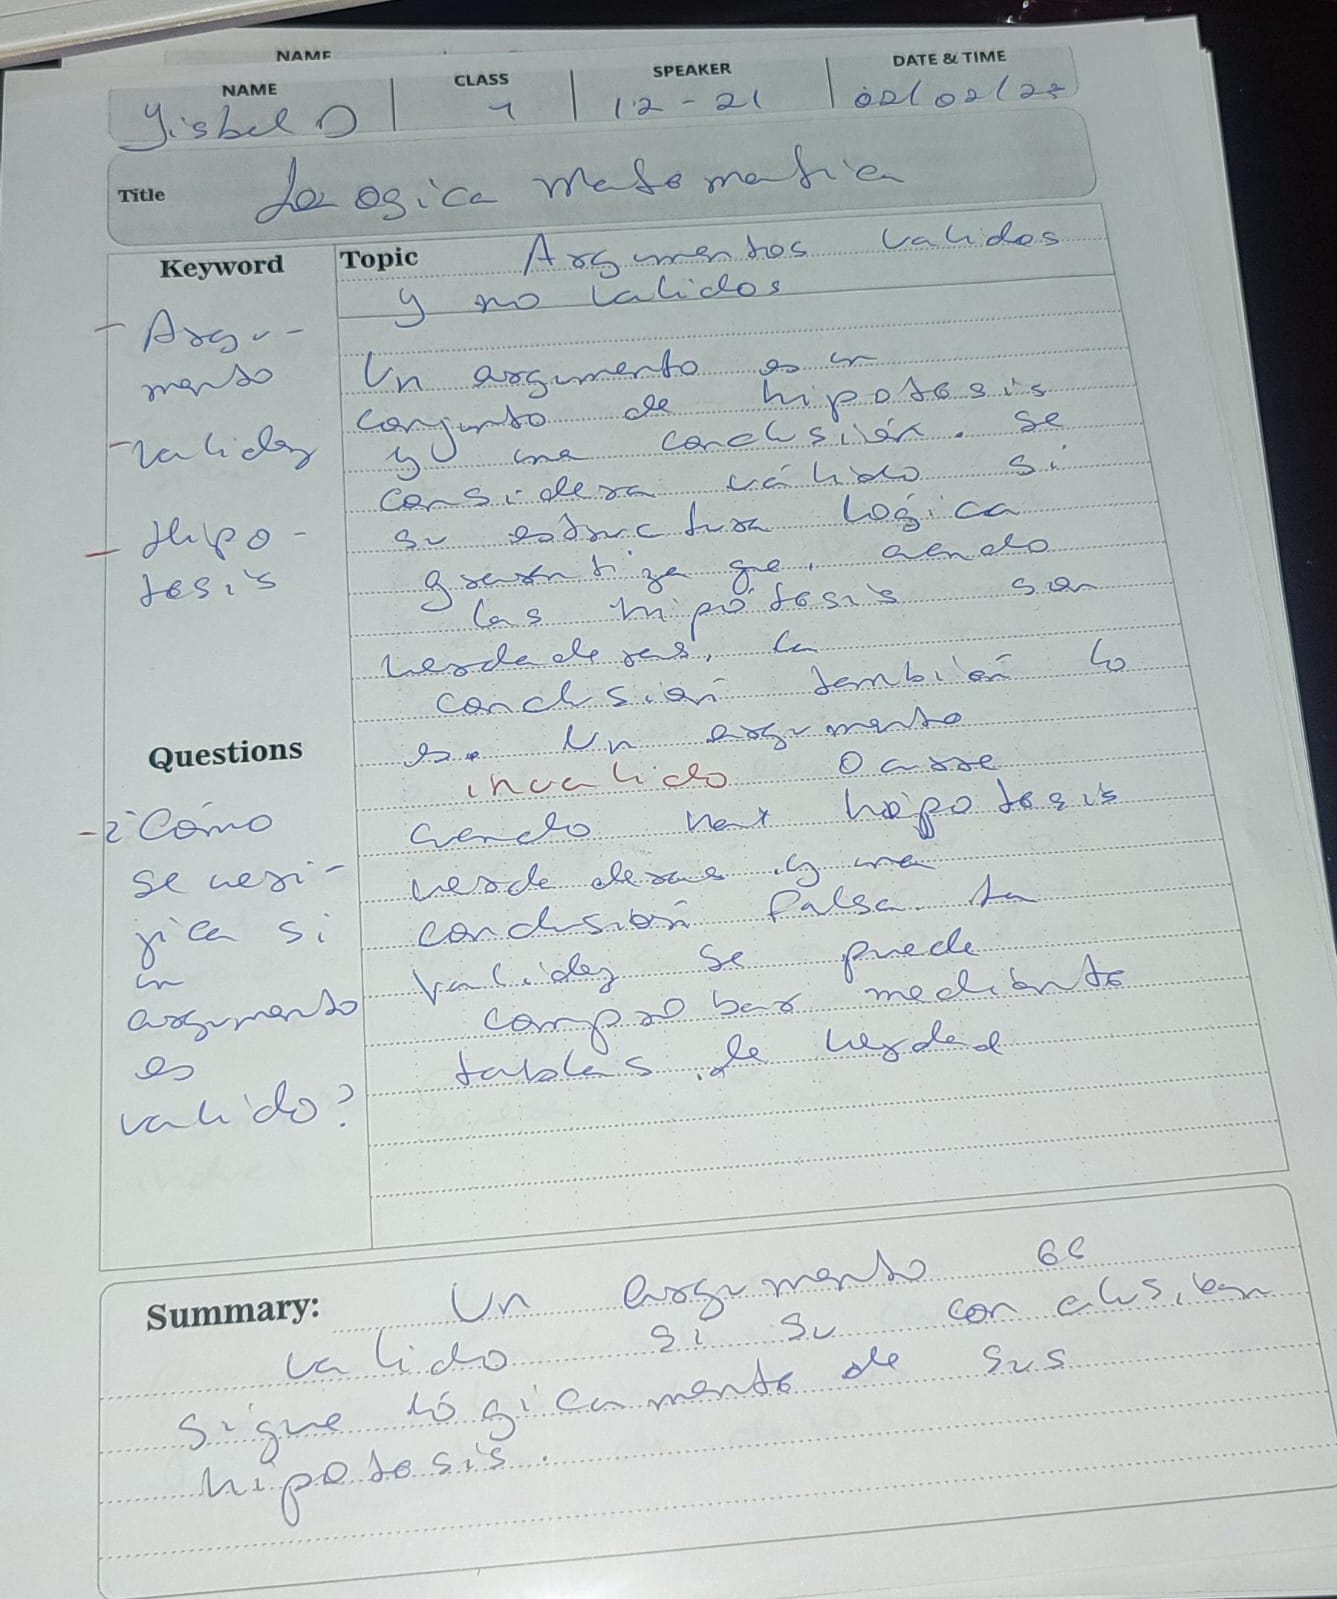 NAME
NAME
CLASS
SPEAKER
DATE & TIME
Yisbel D
12-21
02/02/25
Title
Logica matematica
Keyword
- Argu-
mento
- validez
- Hipo-
tesis
Questions
- ¿Cómo
se veri-
fica si
un
argumento
es
valido?
Topic Argumentos validos
y no validos
Un argumento es un
conjunto de hipotesis
y una conclusión. Se
considera válido si
su estructura lógica
garantiza que, cuando
las hipótesis son
verdaderas, la
conclusión también lo
es. Un argumento
invalido ocurre
cuando hay hipotesis
verdaderas y una
conclusión falsa. La
validez se puede
comprobar mediante
tablas de verdad
Summary: Un argumento es
valido si su conclusion
sigue lógicamente de sus
hipotesis.